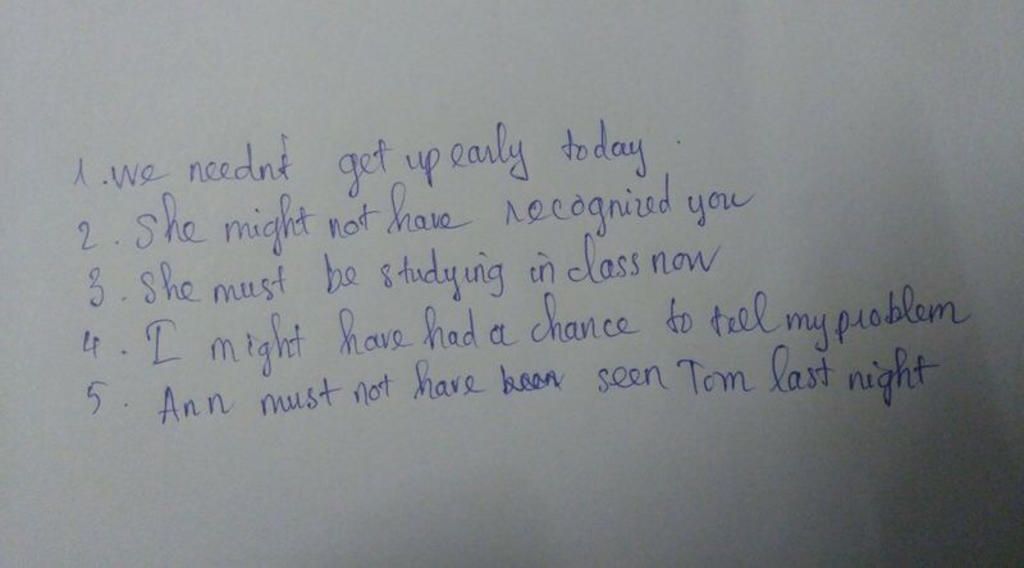 1. We needn't get up early today.
2. She might not have recognized you
3. She must be studying in class now
4. I might have had a chance to tell my problem
5. Ann must not have been seen Tom last night